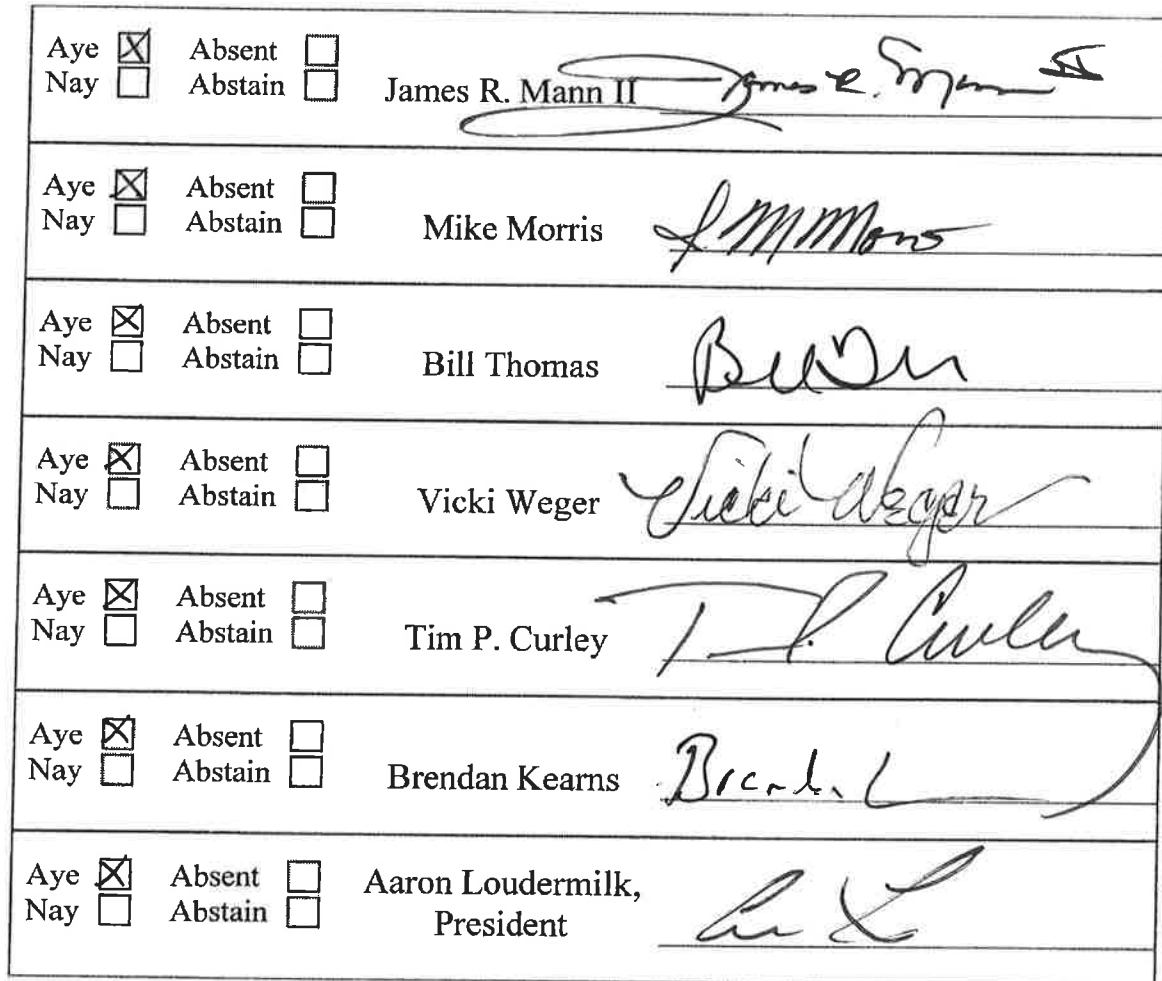 Aye ☒ Absent ☐
Nay ☐ Abstain ☐
James R. Mann II James R. Mann II
Aye ☒ Absent ☐
Nay ☐ Abstain ☐
Mike Morris
Aye ☒ Absent ☐
Nay ☐ Abstain ☐
Bill Thomas
Aye ☒ Absent ☐
Nay ☐ Abstain ☐
Vicki Weger Vicki Weger
Aye ☒ Absent ☐
Nay ☐ Abstain ☐
Tim P. Curley T P. Curley
Aye ☒ Absent ☐
Nay ☐ Abstain ☐
Brendan Kearns
Aye ☒ Absent ☐
Nay ☐ Abstain ☐
Aaron Loudermilk,
President